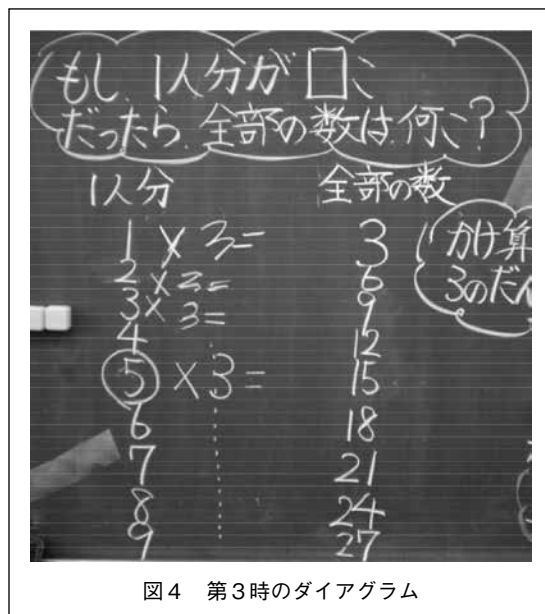 もし、1人分が□こ
だったら、全部の数は、何こ?
1人分 全部の数
1×3= 3
2×3= 6
3×3= 9
4 12
⑤×3= 15
6 18
7 21
8 24
9 27
かけ算
3のだん
図4 第3時のダイアグラム